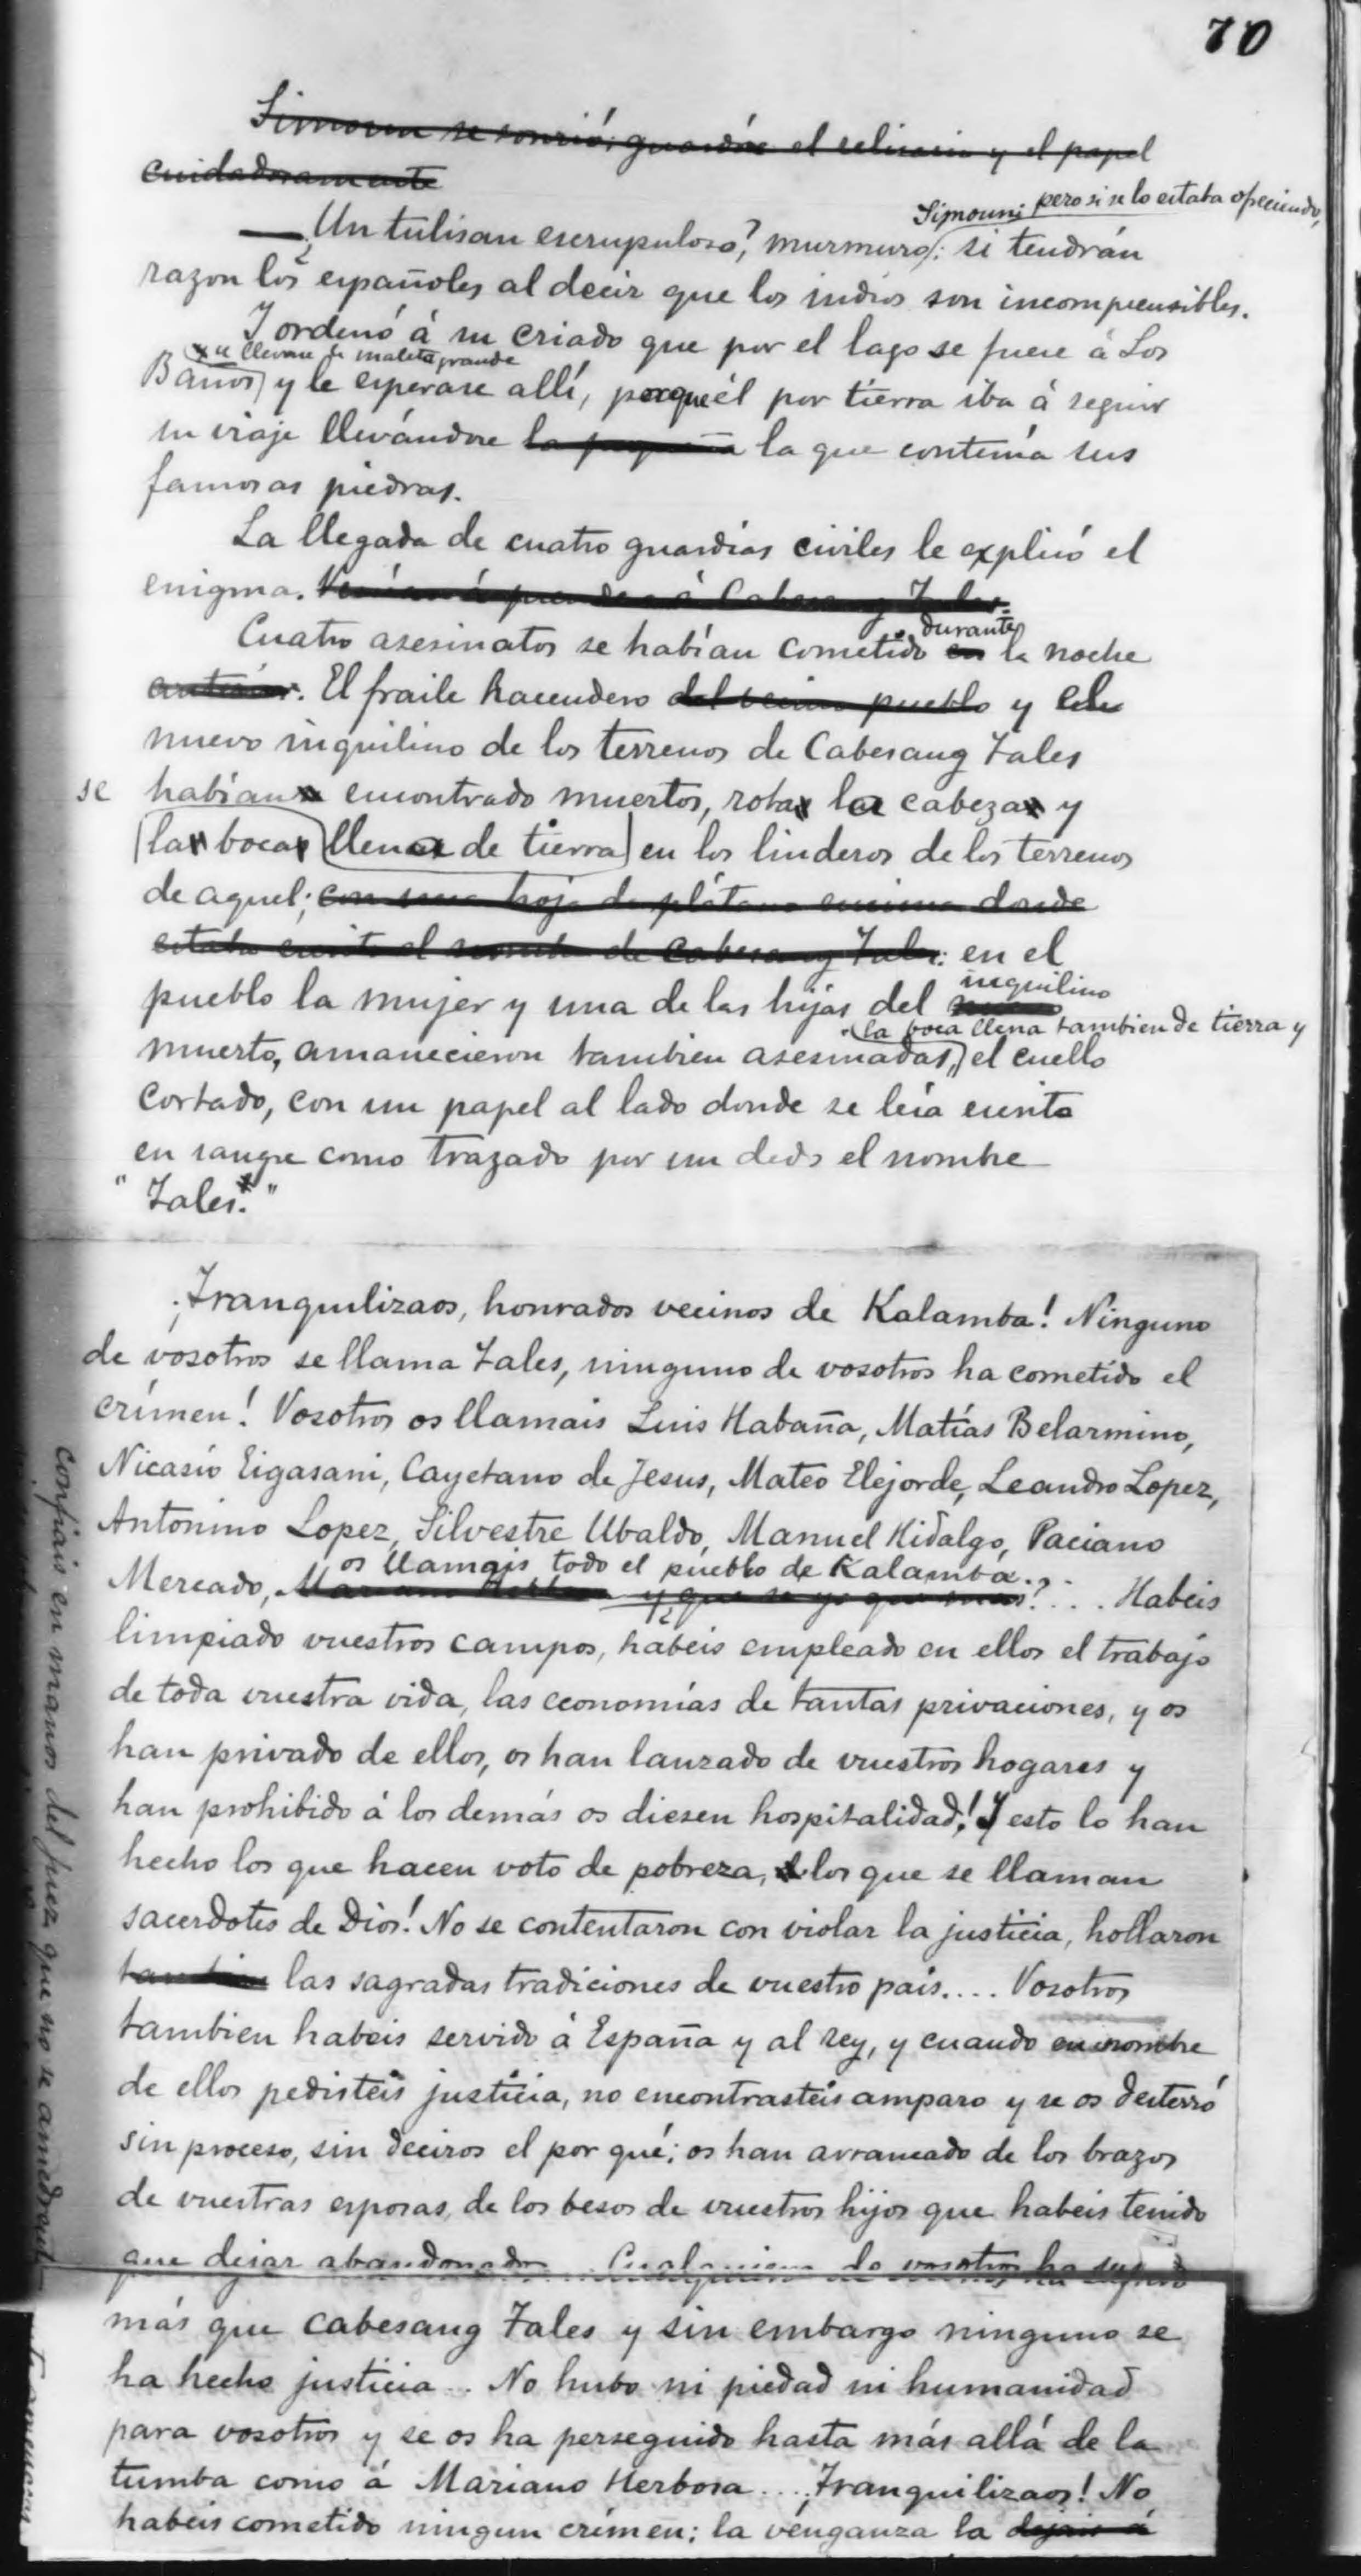 70
Simoun se sonrió; guardóse el relicario y el papel
cuidadosamente
Simoun; pero si se lo estaba ofreciendo,
—¿Un tulisan escrupuloso?, murmuró: si tendrán
razon los españoles al decir que los indios son incomprensibles.
Y ordenó á su criado que por el lago se fuese á Los
se llevase la maleta grande
Baños y le esperase allí, porque él por tierra iba á seguir
su viaje llevándose la pequeña la que contenía sus
famosas piedras.
La llegada de cuatro guardias civiles le explicó el
enigma. Venían á prender á Cabesang Tales.
durante
Cuatro asesinatos se habían cometido en la noche
anterior. El fraile hacendero del vecino pueblo y el
nuevo inquilino de los terrenos de Cabesang Tales
se habían encontrado muertos, rota la cabeza y
la boca llena de tierra en los linderos de los terrenos
de aquel; con una hoja de plátano encima donde
estaba escrito el nombre de Cabesang Tales: en el
inquilino
pueblo la mujer y una de las hijas del
la boca llena tambien de tierra y
muerto, amanecieron tambien asesinadas, el cuello
cortado, con un papel al lado donde se leía escrito
en sangre como trazado por un dedo el nombre
"Tales."
¡Tranquilizaos, honrados vecinos de Kalamba! Ninguno
de vosotros se llama Tales, ninguno de vosotros ha cometido el
crímen! Vosotros os llamais Luis Habaña, Matías Belarmino,
Nicasio Eigasani, Cayetano de Jesus, Mateo Elejorde, Leandro Lopez,
Antonino Lopez, Silvestre Ubaldo, Manuel Hidalgo, Paciano
os llamais todo el pueblo de Kalamba.
Mercado, y ¿que se yo que mas?... Habeis
limpiado vuestros campos, habeis empleado en ellos el trabajo
de toda vuestra vida, las economías de tantas privaciones, y os
han privado de ellos, os han lanzado de vuestros hogares y
han prohibido á los demás os diesen hospitalidad! Y esto lo han
hecho los que hacen voto de pobreza, los que se llaman
sacerdotes de Dios! No se contentaron con violar la justicia, hollaron
tambien las sagradas tradiciones de vuestro pais.... Vosotros
tambien habeis servido á España y al rey, y cuando en nombre
de ellos pedisteis justicia, no encontrasteis amparo y se os desterró
sin proceso, sin deciros el por qué; os han arrancado de los brazos
de vuestras esposas, de los besos de vuestros hijos que habeis tenido
que dejar abandonados... Cualquiera de vosotros ha sufrido
más que Cabesang Tales y sin embargo ninguno se
ha hecho justicia... No hubo ni piedad ni humanidad
para vosotros y se os ha perseguido hasta más allá de la
tumba como á Mariano Herbosa... ¡Tranquilizaos! No
habeis cometido ningun crímen; la venganza la dejais á
confiais en manos del juez que no se amedrenta